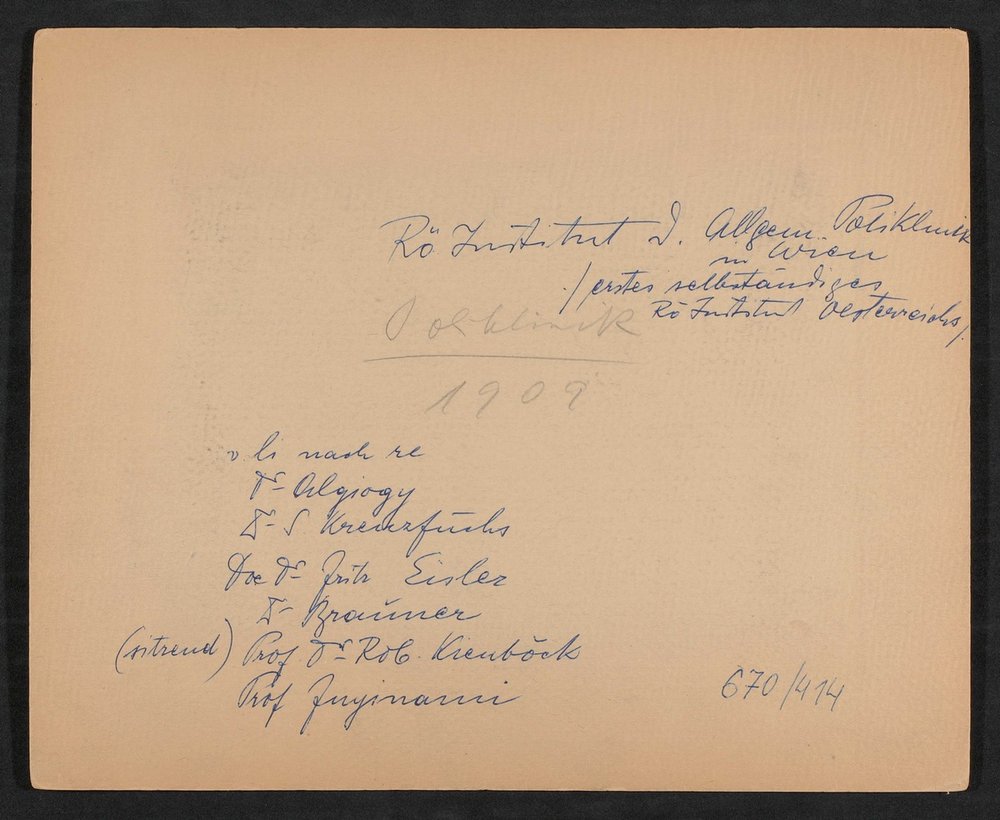 Rö Institut d. Allgem. Poliklinik
in Wien
/ erstes selbständiges
Rö Institut Oesterreichs /.
Poliklinik
1909
v li nach re
Dr Algyogy
Dr S. Kreuzfuchs
Doc Dr Fritz Eisler
Dr Brauner
(sitzend) Prof Dr Rob. Kienböck
Prof Fujinami
670/414